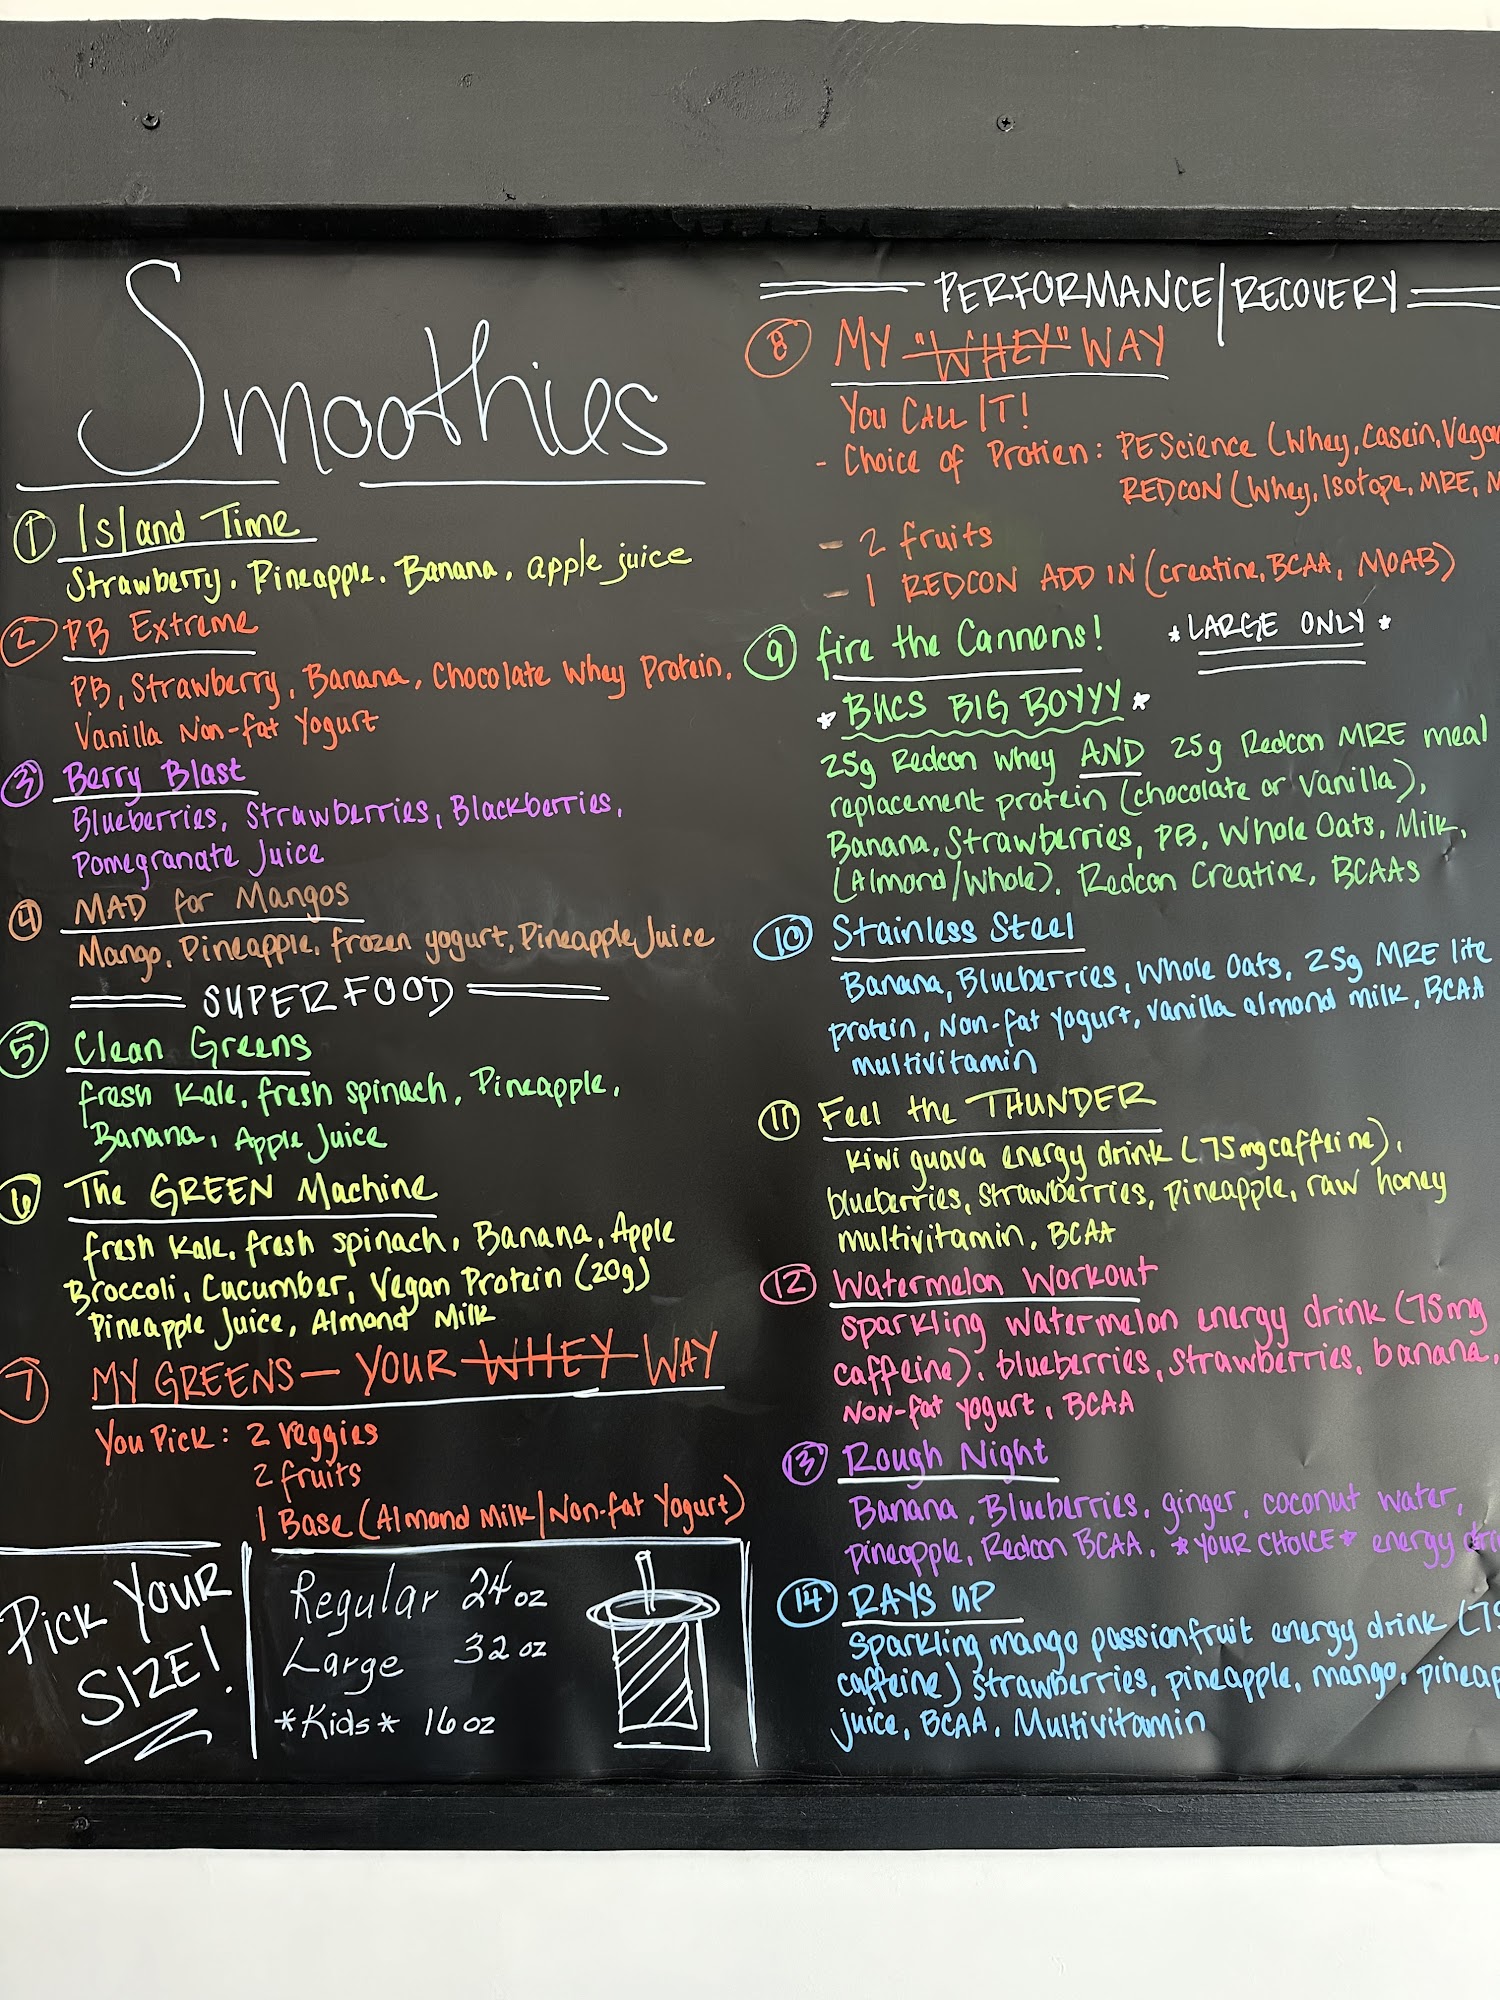 Smoothies
① Island Time
Strawberry, Pineapple, Banana, apple juice
② PB Extreme
PB, Strawberry, Banana, Chocolate Whey Protein,
Vanilla Non-fat Yogurt
③ Berry Blast
Blueberries, Strawberries, Blackberries,
Pomegranate Juice
④ MAD for Mangos
Mango, Pineapple, frozen yogurt, Pineapple Juice
SUPERFOOD
⑤ Clean Greens
fresh Kale, fresh spinach, Pineapple,
Banana, Apple Juice
⑥ The GREEN Machine
fresh Kale, fresh spinach, Banana, Apple
Broccoli, Cucumber, Vegan Protein (20g)
Pineapple Juice, Almond Milk
⑦ MY GREENS — YOUR WHEY WAY
You Pick: 2 veggies
2 fruits
1 Base (Almond Milk/Non-fat Yogurt)
PICK YOUR
SIZE!
Regular 24 oz
Large 32 oz
*Kids* 16 oz
PERFORMANCE/RECOVERY
⑧ MY "WHEY" WAY
YOU CALL IT!
- Choice of Protien: PEScience (Whey, Casein, Vegan
REDCON (Whey, Isotope, MRE,
- 2 fruits
- 1 REDCON ADD IN (creatine, BCAA, MOAB)
⑨ fire the Cannons! *LARGE ONLY*
*BHCS BIG BOYYY*
25g Redcon Whey AND 25g Redcon MRE meal
replacement protein (chocolate or vanilla),
Banana, Strawberries, PB, Whole Oats, Milk,
(Almond/Whole). Redcon Creatine, BCAAs
⑩ Stainless Steel
Banana, Blueberries, Whole Oats, 25g MRE lite
protein, Non-fat yogurt, vanilla almond milk, BCAA
multivitamin
⑪ Feel the THUNDER
kiwi guava energy drink (75mg caffeine),
blueberries, strawberries, pineapple, raw honey
multivitamin, BCAA
⑫ Watermelon Workout
sparkling watermelon energy drink (75mg
caffeine), blueberries, strawberries, banana,
Non-fat yogurt, BCAA
⑬ Rough Night
Banana, Blueberries, ginger, coconut water,
pineapple, Redcon BCAA, *YOUR CHOICE* energy
⑭ RAYS UP
sparkling mango passionfruit energy drink (75
caffeine) strawberries, pineapple, mango, pineap
juice, BCAA, Multivitamin